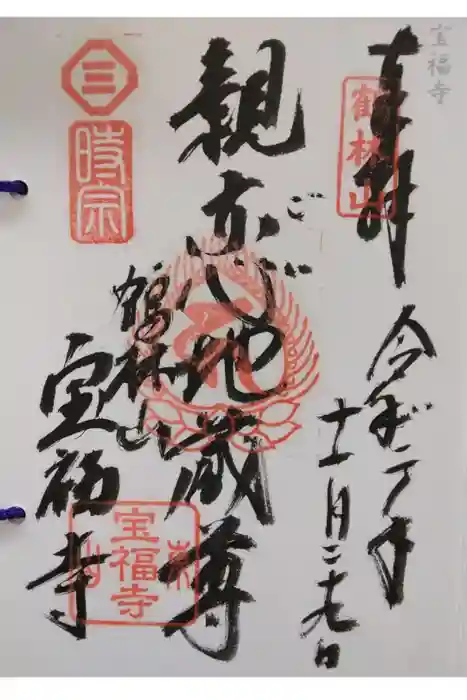 宝福寺
奉拝
鶴林山
令和二年
十一月二十九日
親恋地蔵尊
ごい
鶴林山
宝福寺
三
時宗
宝福寺